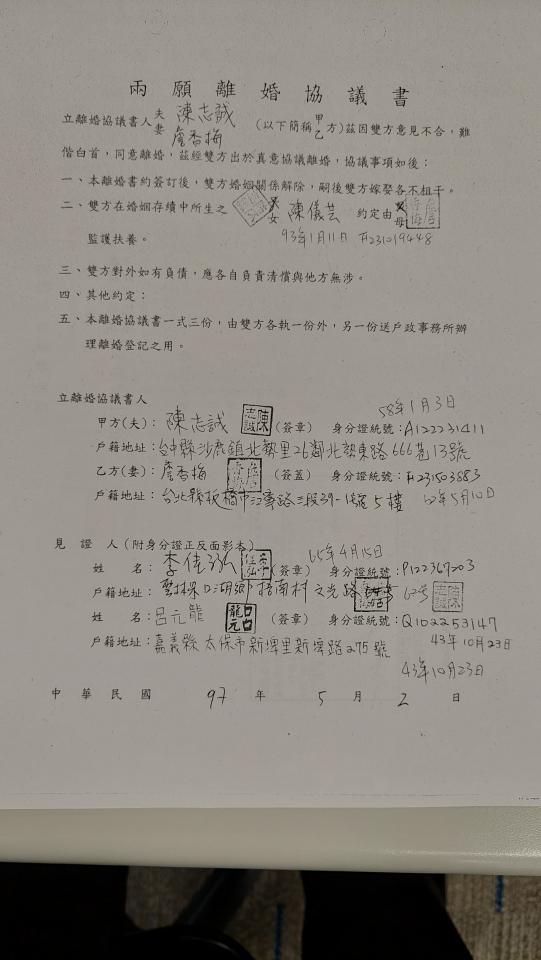 兩願離婚協議書
立離婚協議書人夫妻 陳志誠 詹香梅 (以下簡稱甲乙方)茲因雙方意見不合,難
偕白首,同意離婚,茲經雙方出於真意協議離婚,協議事項如後:
一、本離婚書約簽訂後,雙方婚姻關係解除,嗣後雙方嫁娶各不相干。
二、雙方在婚姻存續中所生之 女 陳儀芸 約定由 母
93年1月11日 F231019448
監護扶養。
三、雙方對外如有負債,應各自負責清償與他方無涉。
四、其他約定:
五、本離婚協議書一式三份,由雙方各執一份外,另一份送戶政事務所辦
理離婚登記之用。
立離婚協議書人
58年1月3日
甲方(夫):陳志誠 陳志誠 (簽章) 身分證統號:A122231411
戶籍地址:台中縣沙鹿鎮北勢里26鄰北勢東路666巷13號
乙方(妻):詹香梅 (簽蓋) 身分證統號:F231503883
戶籍地址:台北縣板橋市江寧路三段39-1號5樓 年5月10日
見證人(附身分證正反面影本)
65年4月15日
姓名:李佳 (簽章) 身分證統號:P122367203
戶籍地址:口湖鄉 南村文光路 62號
姓名:呂元龍 (簽章) 身分證統號:Q102253147
43年10月23日
戶籍地址:嘉義縣太保市新埤里新埤路275號
43年10月23日
中華民國 97 年 5 月 2 日